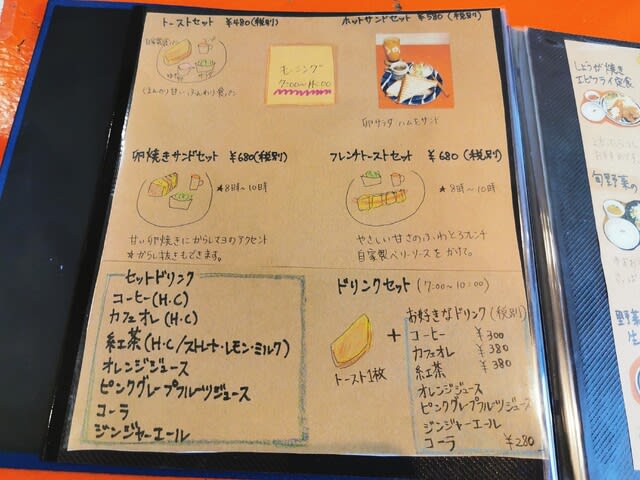 トーストセット ¥480(税別)
ホットサンドセット ¥580(税別)
モーニング
7:00〜11:00
ほんのり甘い、ふんわり食パン
卵サラダ ハムをサンド
卵焼きサンドセット ¥680(税別)
★8時〜10時
甘い卵焼きにからしマヨのアクセント
★からし抜きもできます。
フレンチトーストセット ¥680(税別)
★8時〜10時
やさしい甘さのふわとろフレンチ
自家製ベリーソースをかけて。
セットドリンク
コーヒー(H・C)
カフェオレ(H・C)
紅茶(H・C/ストレート・レモン・ミルク)
オレンジジュース
ピンクグレープフルーツジュース
コーラ
ジンジャーエール
ドリンクセット(7:00〜10:00)
トースト1枚
+
お好きなドリンク(税別)
コーヒー ¥300
カフェオレ ¥380
紅茶 ¥380
オレンジジュース
ピンクグレープフルーツジュース
ジンジャーエール
コーラ ¥280
しょうが焼き
エビフライ定食
旬野菜
野菜
生